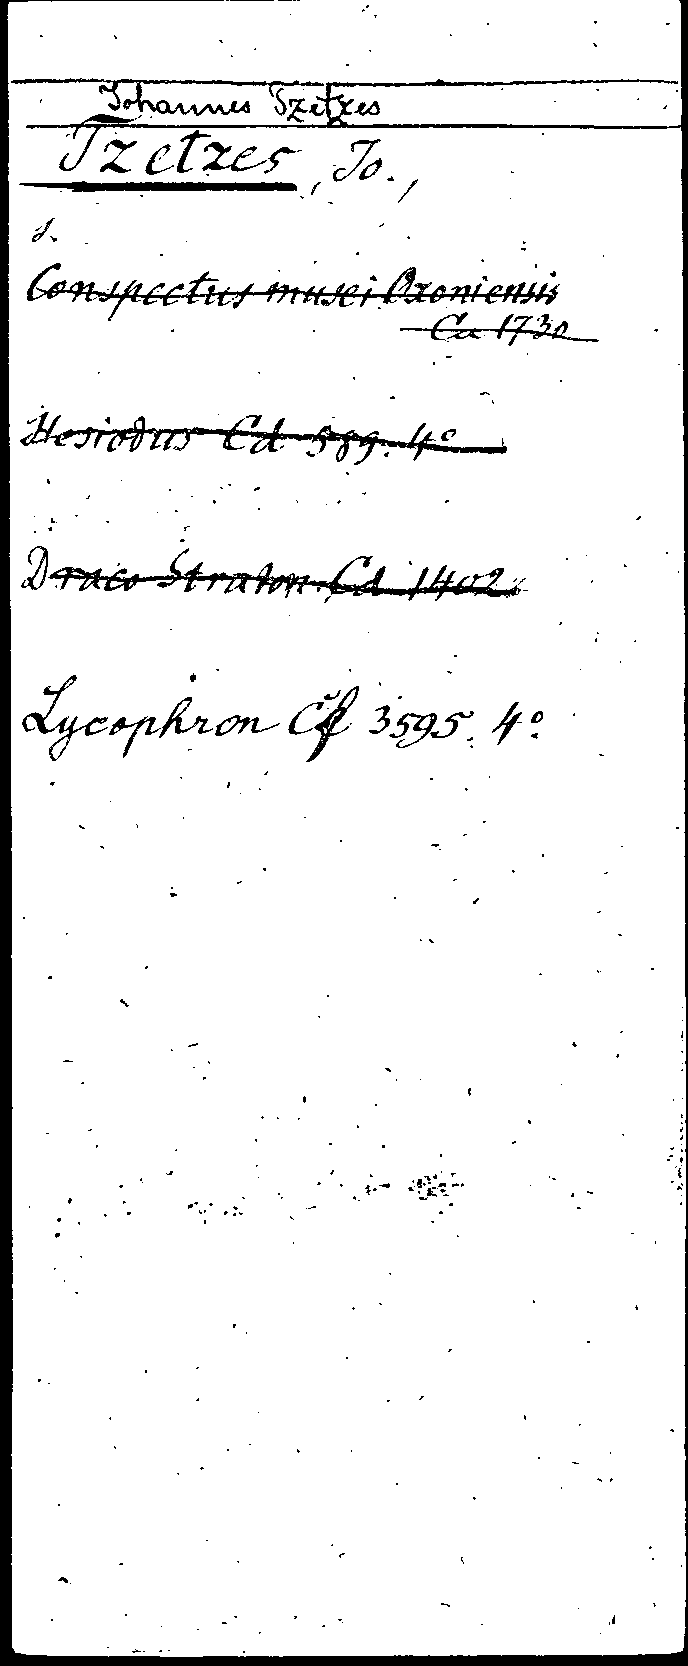 Johannes Tzetzes
Tzetzes, Jo.,
s.
Conspectus musei Oxoniensis
Ca 1730
Hesiodus Cd 589. 4°
Draco Straton. Cd 1402
Lycophron Cf 3595. 4°.